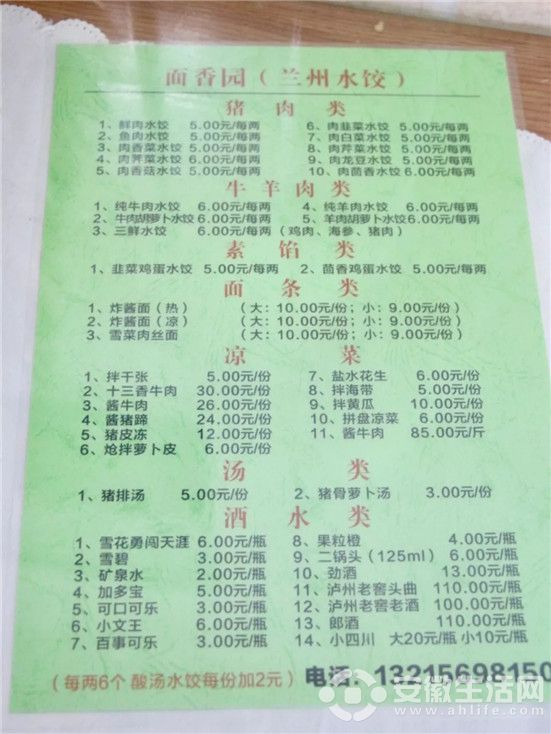 面香园（兰州水饺）
猪肉类
1、鲜肉水饺 5.00元/每两 6、肉韭菜水饺 5.00元/每两
2、鱼肉水饺 5.00元/每两 7、肉白菜水饺 5.00元/每两
3、肉香菜水饺 5.00元/每两 8、肉芹菜水饺 5.00元/每两
4、肉荠菜水饺 5.00元/每两 9、肉龙豆水饺 5.00元/每两
5、肉香菇水饺 5.00元/每两 10、肉茴香水饺 6.00元/每两
牛羊肉类
1、纯牛肉水饺 6.00元/每两 4、纯羊肉水饺 6.00元/每两
2、牛肉胡萝卜水饺 6.00元/每两 5、羊肉胡萝卜水饺 6.00元/每两
3、三鲜水饺 6.00元/每两（鸡肉、海参、猪肉）
素馅类
1、韭菜鸡蛋水饺 5.00元/每两 2、茴香鸡蛋水饺 5.00元/每两
面条类
1、炸酱面（热）（大：10.00元/份；小：9.00元/份）
2、炸酱面（凉）（大：10.00元/份；小：9.00元/份）
3、雪菜肉丝面（大：10.00元/份；小：9.00元/份）
凉菜
1、拌干张 5.00元/份 7、盐水花生 6.00元/份
2、十三香牛肉 30.00元/份 8、拌海带 5.00元/份
3、酱牛肉 26.00元/份 9、拌黄瓜 10.00元/份
4、酱猪蹄 24.00元/份 10、拼盘凉菜 6.00元/份
5、猪皮冻 12.00元/份 11、酱牛肉 85.00元/斤
6、炝拌萝卜皮 6.00元/份
汤类
1、猪排汤 5.00元/份 2、猪骨萝卜汤 3.00元/份
酒水类
1、雪花勇闯天涯 6.00元/瓶 8、果粒橙 4.00元/瓶
2、雪碧 3.00元/瓶 9、二锅头（125ml） 6.00元/瓶
3、矿泉水 2.00元/瓶 10、劲酒 13.00元/瓶
4、加多宝 5.00元/瓶 11、泸州老窖头曲 110.00元/瓶
5、可口可乐 3.00元/瓶 12、泸州老窖老酒 100.00元/瓶
6、小文王 6.00元/瓶 13、郎酒 110.00元/瓶
7、百事可乐 3.00元/瓶 14、小四川 大20元/瓶 小10元/瓶
（每两6个 酸汤水饺每份加2元） 电话：13215698150
安徽生活网
www.ahlife.com